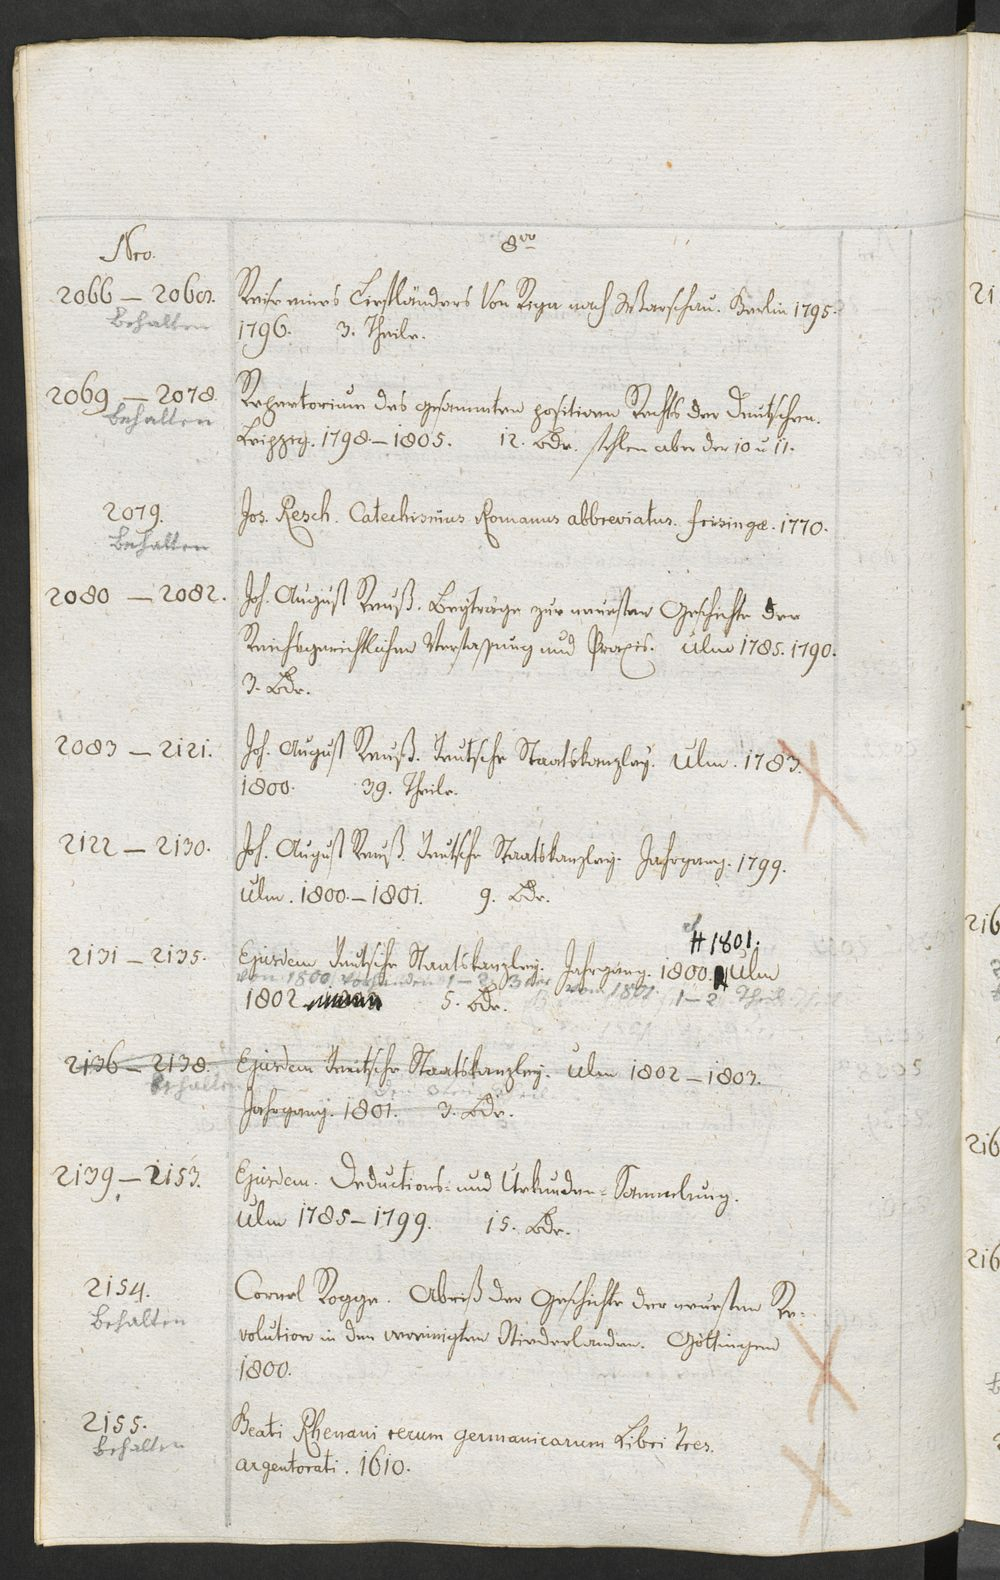 Nro.
8vo
2066 — 2068. Reise eines Liefländers von Riga nach Warschau. Berlin 1795.
Behalten
1796. 3. Theile.
2069 — 2078 Repertorium des gesammten positiven Rechts der Deutschen.
Behalten
Leipzig. 1798 — 1805. 12. Bde. fehlen aber der 10 u 11.
2079. Jos. Resch. Catechismus Romanus abbreviatus. frisingæ. 1770.
Behalten
2080 — 2082. Joh. August Reuß. Beyträge zur neuesten Geschichte der
Reichsgerichtlichen Verfassung und Praxis. Ulm 1785. 1790.
3. Bde.
2083 — 2121. Joh. August Reuß. Teutsche Staatskanzley. Ulm. 1783.
1800. 39. Theile.
2122 — 2130. Joh. August Reuß. Teutsche Staatskanzley. Jahrgang. 1799.
Ulm. 1800. — 1801. 9. Bde.
1801.
2131 — 2135. Ejusdem Teutsche Staatskanzley. Jahrgang. 1800. Ulm
von 1800. vorhanden 1 — 2. 3 von 1801. 1 — 2 Theil
1802 5. Bde.
2136 — 2138. Ejusdem Teutsche Staatskanzley. Ulm 1802 — 1803.
Behalten
Jahrgang. 1801. 3. Bde.
2139 — 2153. Ejusdem. Deductions- und Urkunden-Sammlung.
Ulm 1785 — 1799. 15. Bde.
2154. Cornel Rogge. Abriß der Geschichte der neuesten Re-
Behalten
volution in den vereinigten Niederlanden. Göttingen
1800.
2155. Beati Rhenani rerum germanicarum Libri Tres.
Behalten
argentorati. 1610.
21
216
216
216